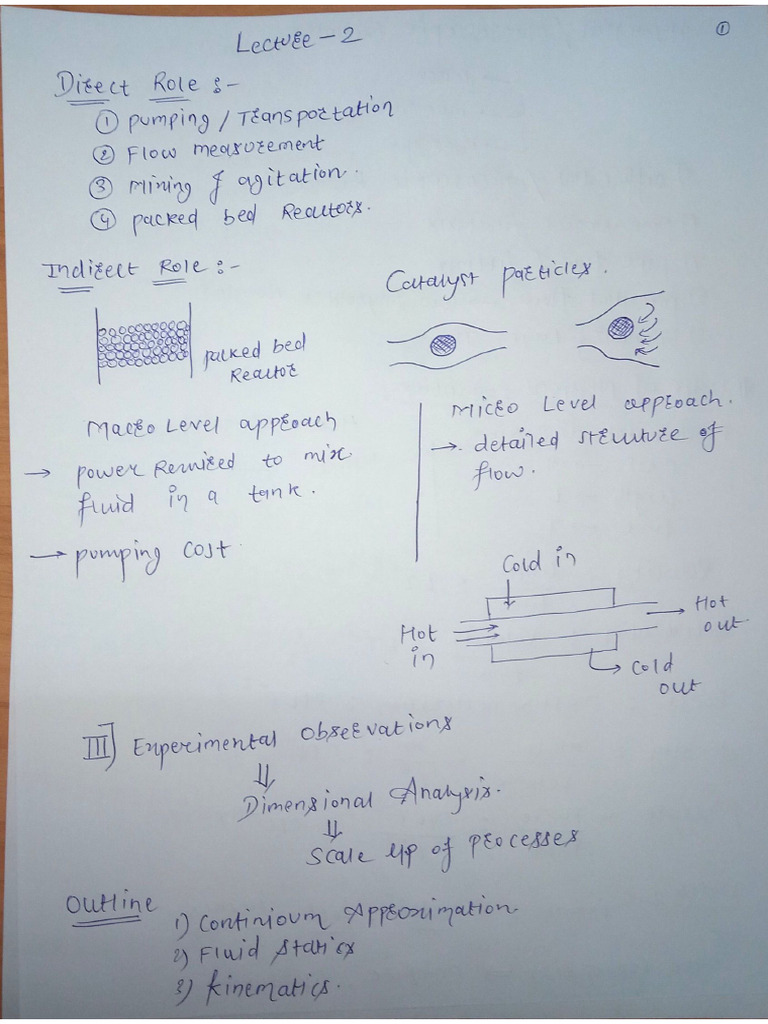 Lecture - 2
①
Direct Role :-
① pumping / Transportation
② Flow measurement
③ Mixing & agitation.
④ packed bed Reactors.
Indirect Role :-
Catalyst particles.
packed bed
Reactor
Macro Level approach
→ power Required to mix
fluid in a tank.
→ pumping cost.
Micro Level approach.
→ detailed structure of
flow.
Cold in
Hot
in
Hot
out.
Cold
out
III] Experimental Observations
⇓
Dimensional Analysis.
⇓
Scale up of processes
Outline
1) Continioum Approximation.
2) Fluid Statics
3) Kinematics.